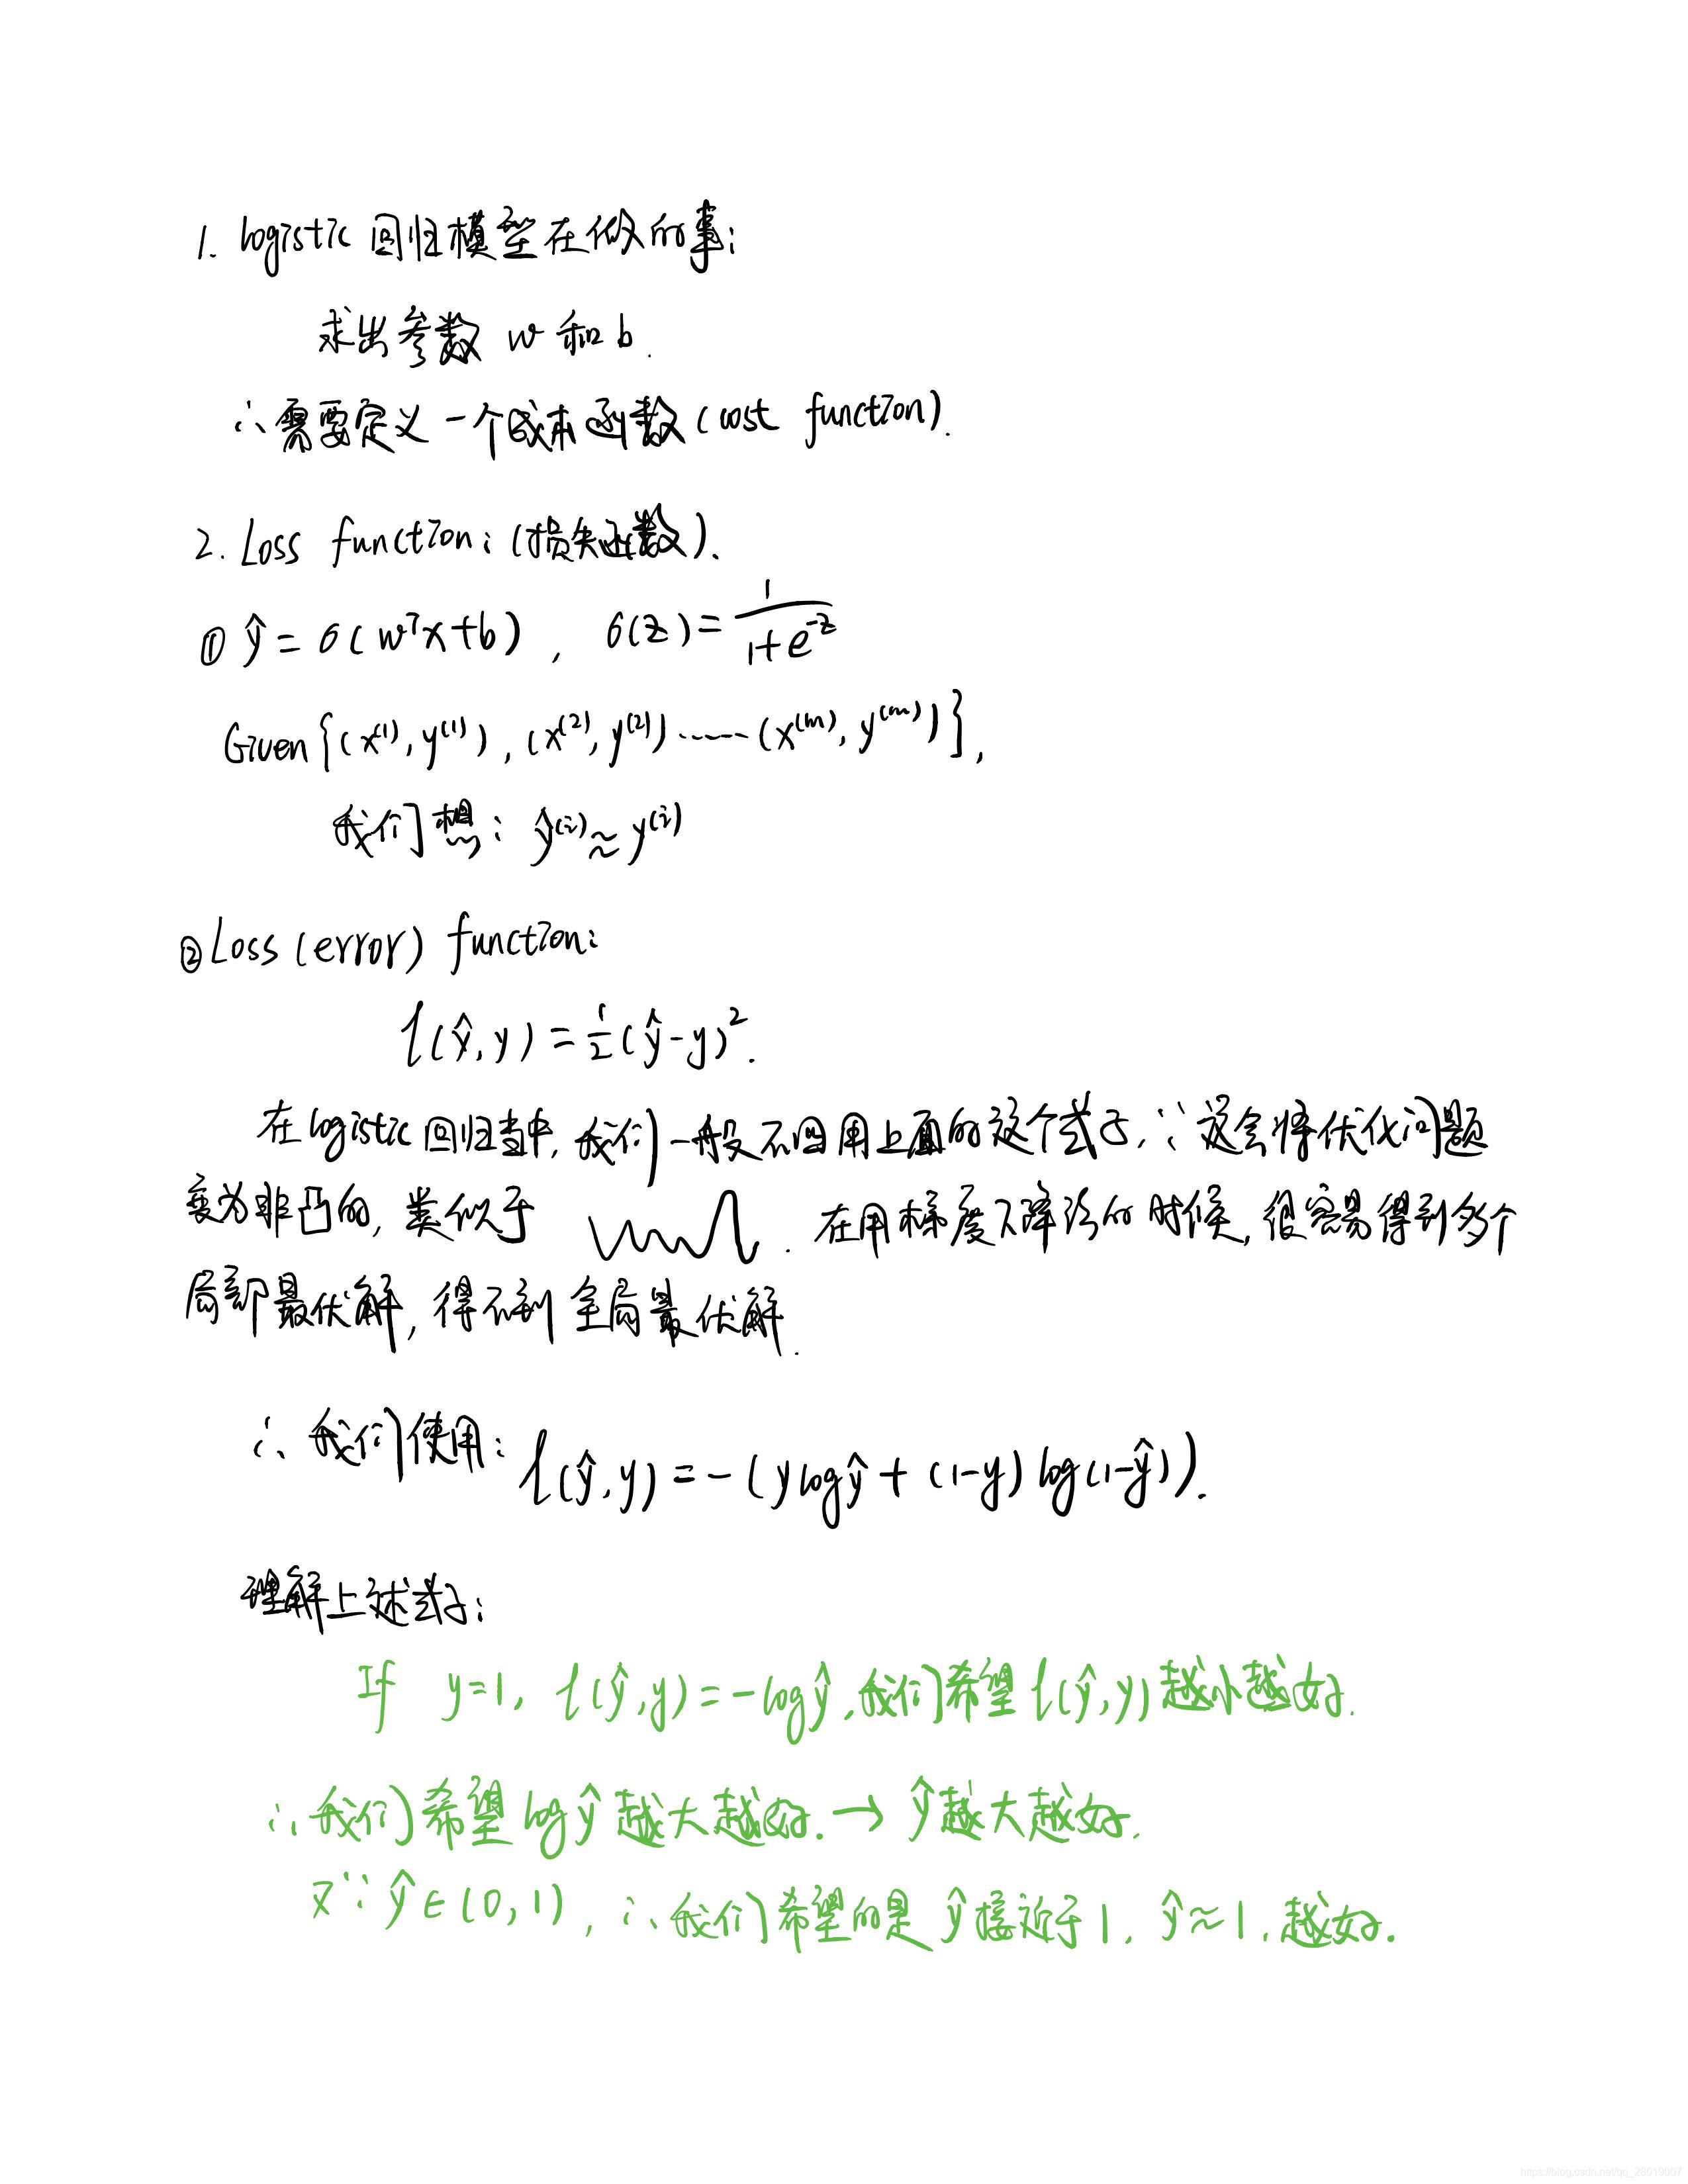 1. logistic 回归模型在做的事:
求出参数 w 和 b.
∴需要定义一个成本函数(cost function).
2. Loss function: (损失函数).
① ŷ = σ(wᵀx+b), σ(z) = 1/(1+e^{-z})
Given {(x^{(1)}, y^{(1)}), (x^{(2)}, y^{(2)}) ······ (x^{(m)}, y^{(m)})},
我们想: ŷ^{(i)} ≈ y^{(i)}
② Loss (error) function:
l(ŷ, y) = 1/2 (ŷ-y)².
在logistic回归当中, 我们一般不用上面的这个式子, ∵这会将优化问题
变为非凸的, 类似于 . 在用梯度下降法的时候, 很容易得到多个
局部最优解, 得不到全局最优解.
∴ 我们使用: l(ŷ, y) = -(y log ŷ + (1-y) log(1-ŷ)).
理解上述式子:
If y=1, l(ŷ, y) = -log ŷ, 我们希望 l(ŷ, y) 越小越好.
∴我们希望 log ŷ 越大越好. → ŷ越大越好.
又∵ ŷ∈(0, 1), ∴我们希望的是 ŷ接近于1, ŷ≈1, 越好.
https://blog.csdn.net/qq_26019007